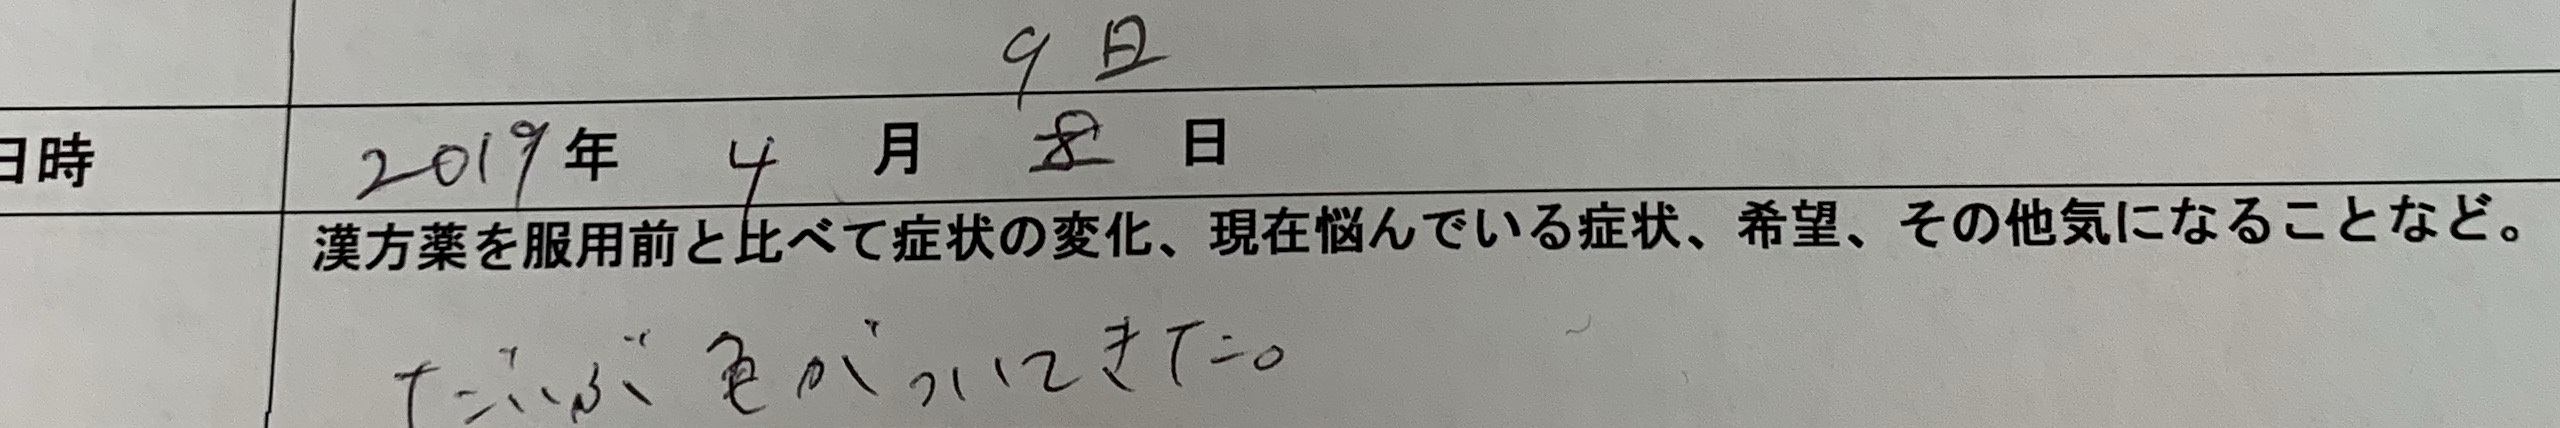 9日
日時 2019年 4月 8日
漢方薬を服用前と比べて症状の変化、現在悩んでいる症状、希望、その他気になることなど。
だいぶ色がついてきた。